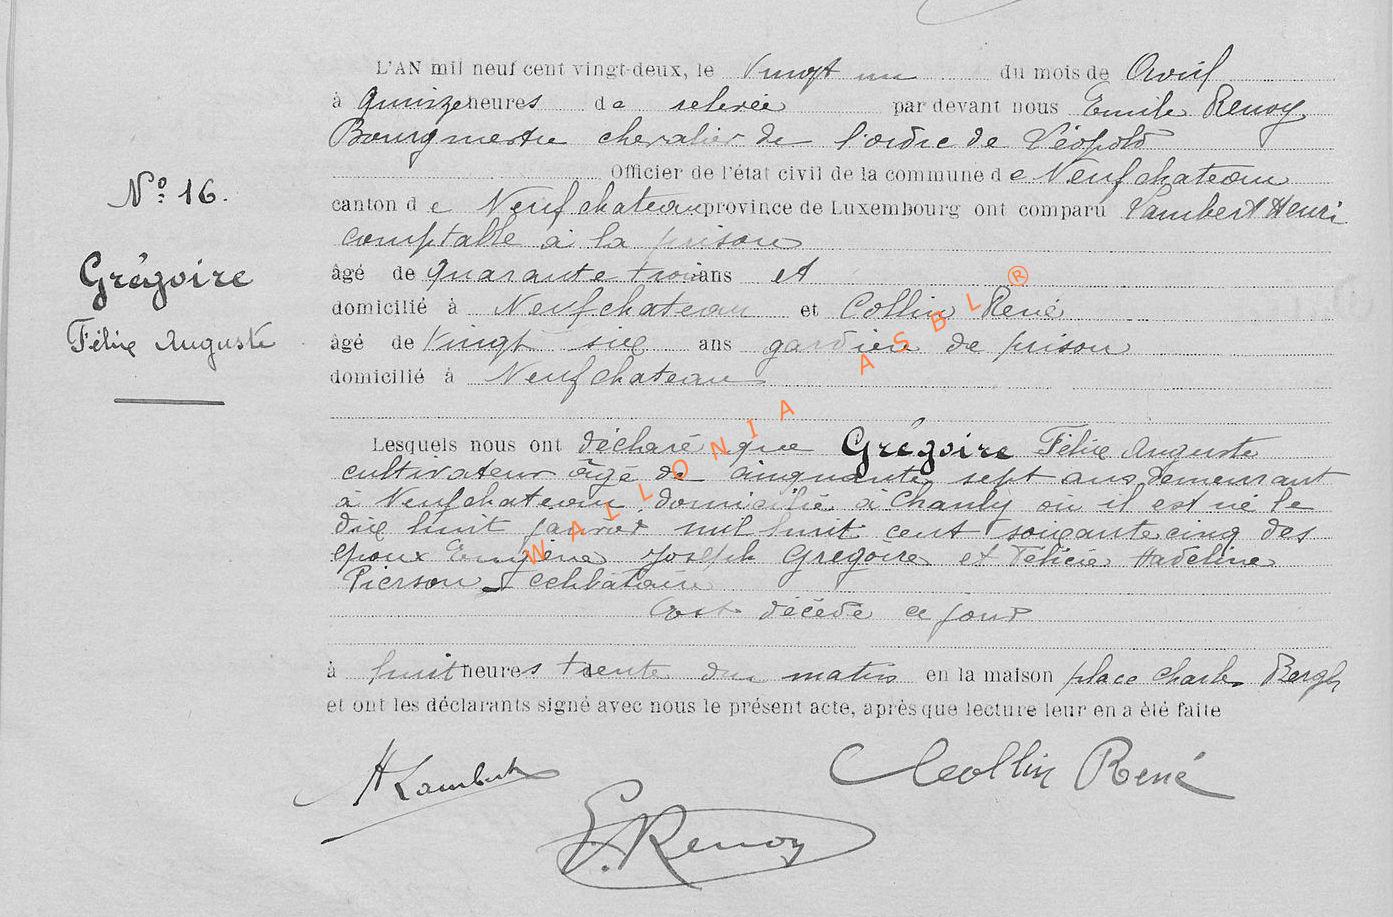 L'AN mil neuf cent vingt-deux, le Vingt un du mois de Avril
à Quinze heures de relevée par devant nous Emile Renoy
Bourgmestre chevalier de l'ordre de Léopold
Officier de l'état civil de la commune de Neufchateau
N° 16.
canton de Neufchateau province de Luxembourg ont comparu Lambert Henri
comptable à la prison
Grégoire
âgé de quarante trois ans et
domicilié à Neufchateau et Collin René
Félix Auguste
âgé de Vingt six ans gardien de prison
domicilié à Neufchateau
Lesquels nous ont déclaré que Grégoire Félix Auguste
cultivateur âgé de cinquante sept ans demeurant
à Neufchateau, domicilié à Chanly où il est né le
dix huit janvier mil huit cent soixante cinq des
époux Eugène Joseph Grégoire et Félicie Hadeline
Pierson célibataire
est décédé ce jour
à huit heures trente du matin en la maison place Charles Bergh
et ont les déclarants signé avec nous le présent acte, après que lecture leur en a été faite
H Lambert
Collin René
E. Renoy
WALLONIA ASBL ®